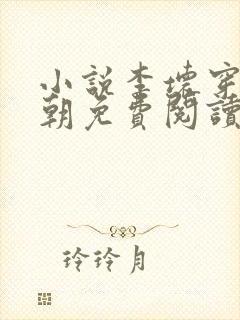 小說李孻穿
朝免費閱讀
玲玲月